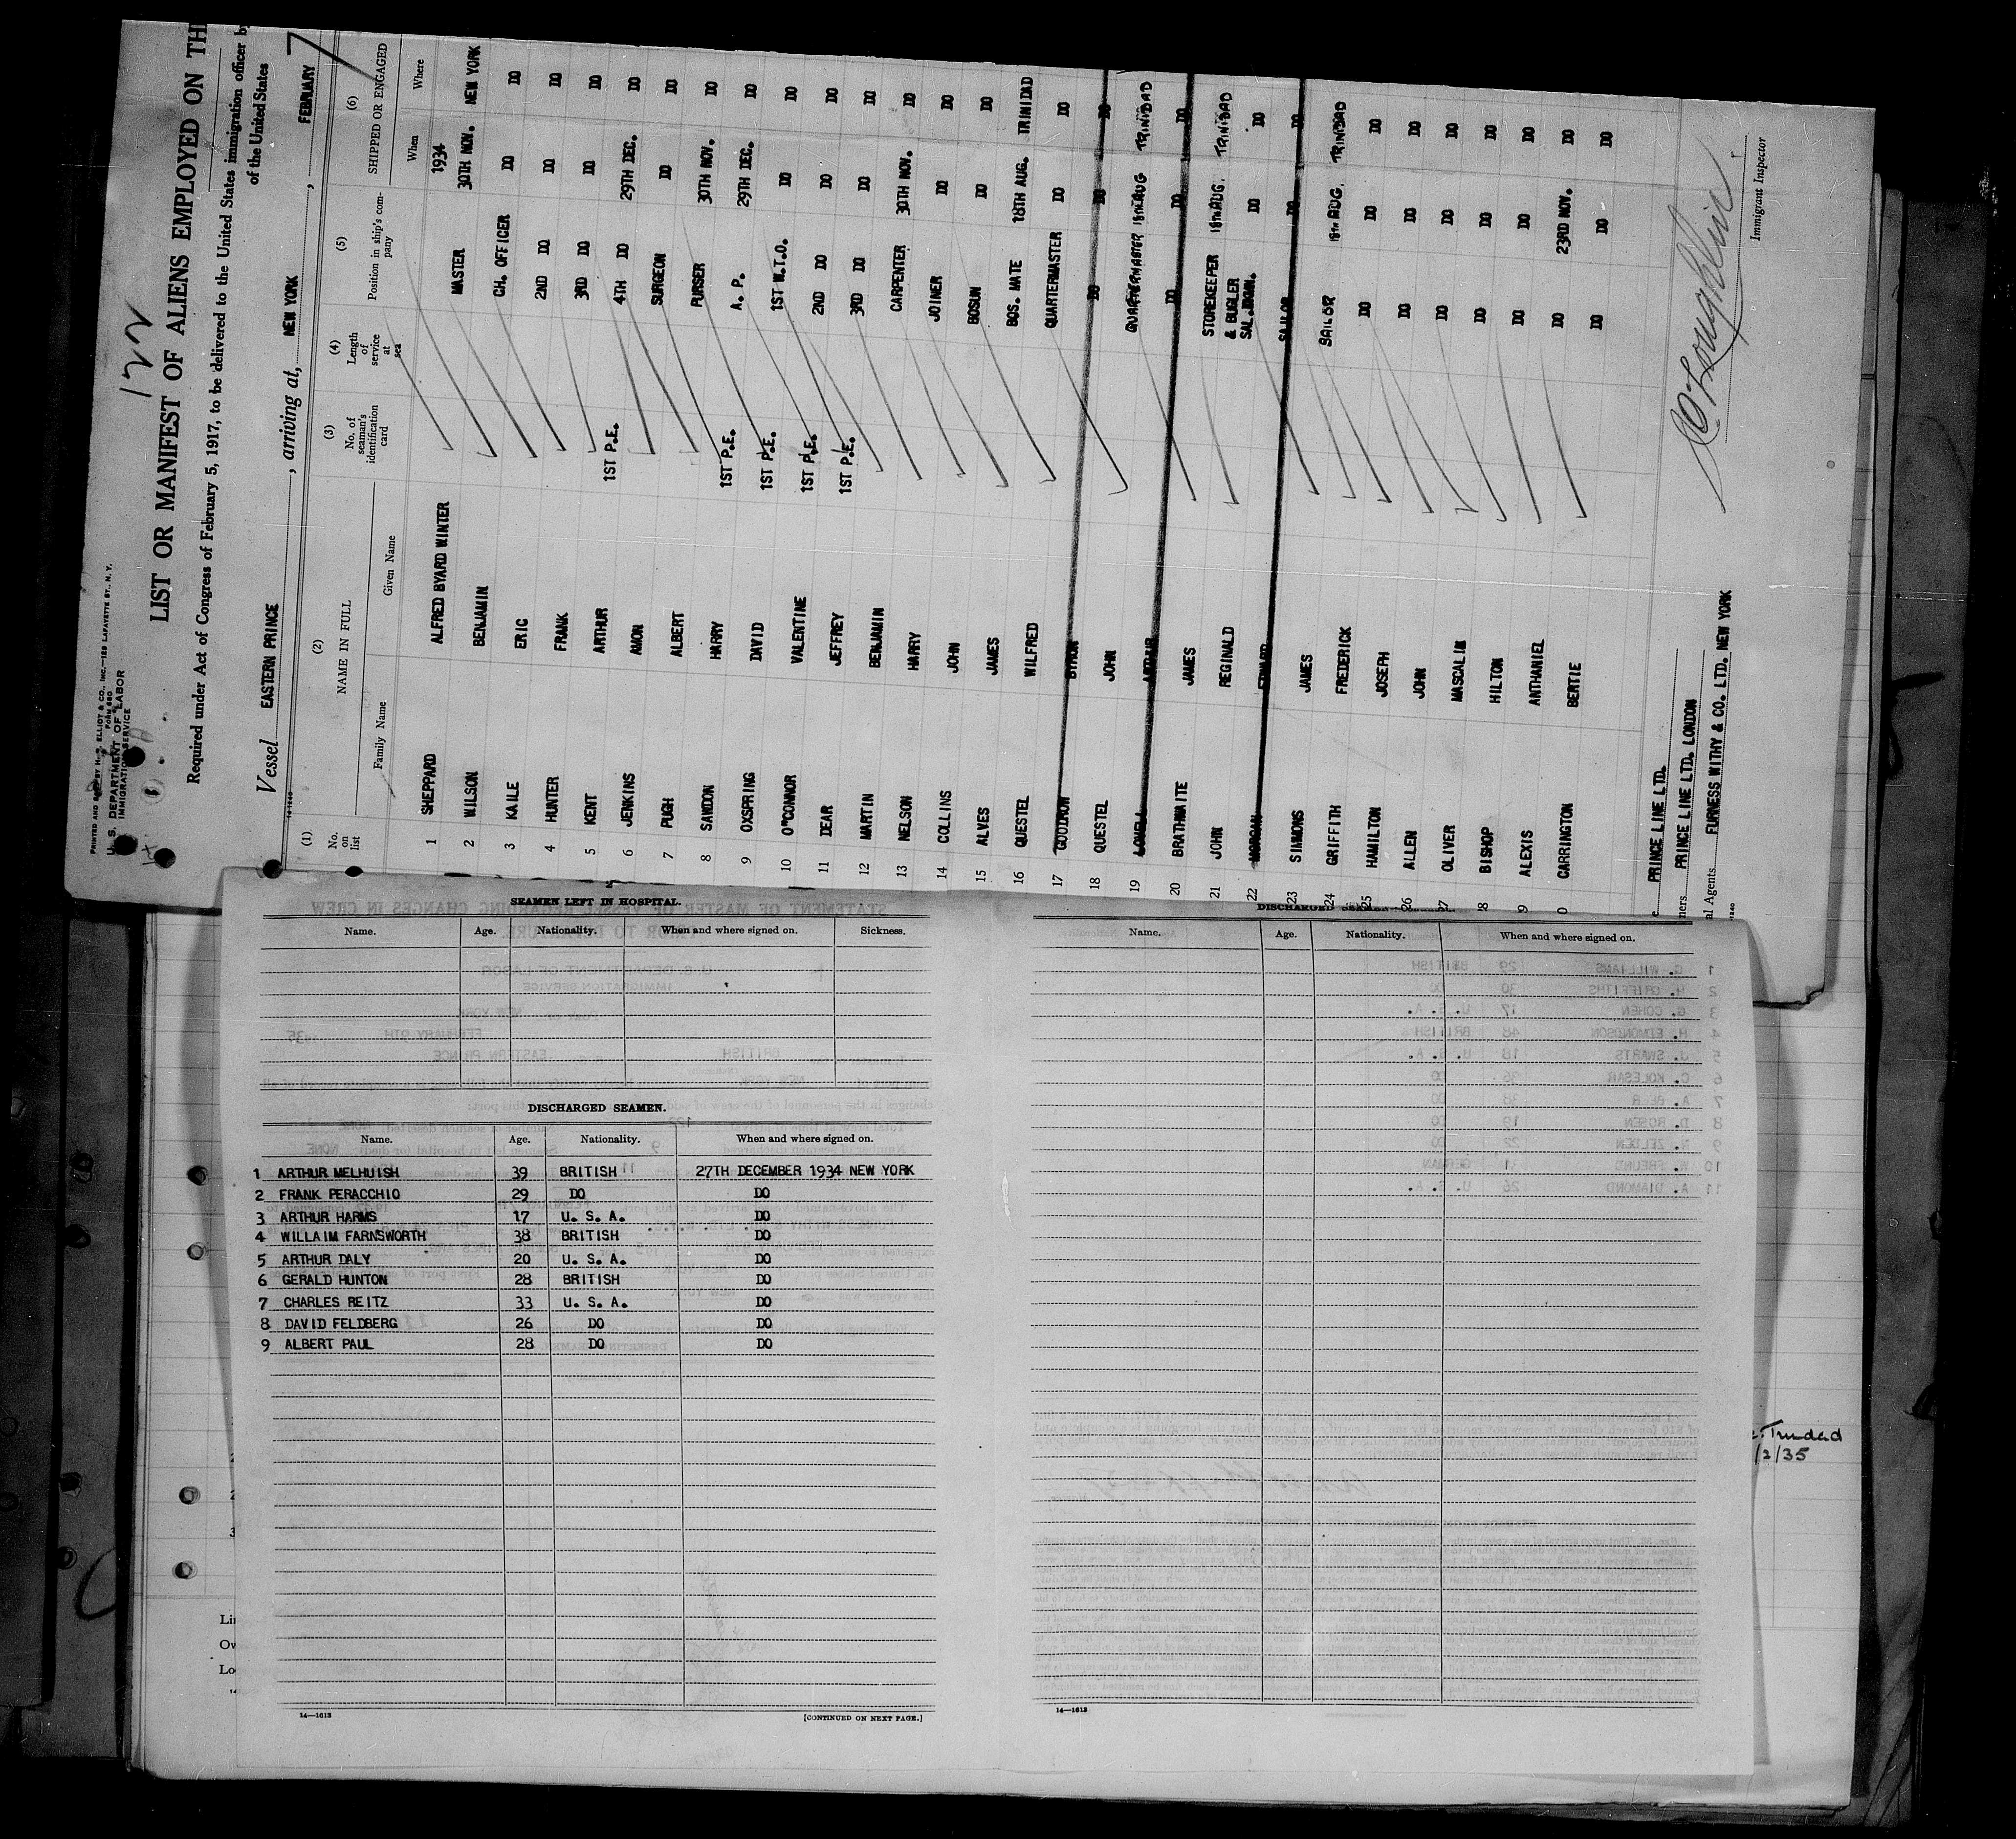 PRINTED AND SOLD BY H. S. ELLIOT & CO., INC.—129 LAFAYETTE ST., N. Y.
FORM 680
U. S. DEPARTMENT OF LABOR
IMMIGRATION SERVICE
122
LIST OR MANIFEST OF ALIENS EMPLOYED ON TH
Required under Act of Congress of February 5, 1917, to be delivered to the United States immigration officer by
of the United States
Vessel EASTERN PRINCE , arriving at, NEW YORK , FEBRUARY 7
(1) (2) (3) (4) (5) (6)
No. on list NAME IN FULL No. of seaman's identification card Length of service at sea Position in ship's company SHIPPED OR ENGAGED
Family Name Given Name When Where
1934
1 SHEPPARD ALFRED BYARD WINTER MASTER 30TH NOV. NEW YORK
2 WILSON BENJAMIN CH. OFFICER DO DO
3 KAILE ERIC 2ND DO DO DO
4 HUNTER FRANK 3RD DO DO DO
5 KENT ARTHUR 1ST P.E. 4TH DO 29TH DEC. DO
6 JENKINS AMON SURGEON DO DO
7 PUGH ALBERT PURSER 30TH NOV. DO
8 SAWDON HARRY 1ST P.E. A. P. 29TH DEC. DO
9 OXSPRING DAVID 1ST P.E. 1ST W.T.O. DO DO
10 O"CONNOR VALENTINE 1ST P.E. 2ND DO DO DO
11 DEAR JEFFREY 1ST P.E. 3RD DO DO DO
12 MARTIN BENJAMIN CARPENTER 30TH NOV. DO
13 NELSON HARRY JOINER DO DO
14 COLLINS JOHN BOSUN DO DO
15 ALVES JAMES BOS. MATE 18TH AUG. TRINIDAD
16 QUESTEL WILFRED QUARTERMASTER DO DO
17 GOUDRON BYRON DO DO DO
18 QUESTEL JOHN QUARTERMASTER 18TH AUG TRINIDAD
19 LOWELL ARTHUR DO DO DO
20 BRATHWAITE JAMES STOREKEEPER 18TH AUG. TRINIDAD
& BUGLER
21 JOHN REGINALD SAL. DO DO
22 MORGAN EDWARD SAILOR DO DO
23 SIMMONS JAMES SAILOR 18TH AUG. TRINIDAD
24 GRIFFITH FREDERICK DO DO DO
25 HAMILTON JOSEPH DO DO DO
26 ALLEN JOHN DO DO DO
7 OLIVER MASCALIM DO DO DO
8 BISHOP HILTON DO DO DO
9 ALEXIS ANTHANIEL DO 23RD NOV. DO
0 CARRINGTON BERTIE DO DO DO
PRINCE LINE LTD.
ners PRINCE LINE LTD. LONDON
al Agents FURNESS WITHY & CO. LTD. NEW YORK
Immigrant Inspector
SEAMEN LEFT IN HOSPITAL.
Name. Age. Nationality. When and where signed on. Sickness.
DISCHARGED SEAMEN.
Name. Age. Nationality. When and where signed on.
1 ARTHUR MELHUISH 39 BRITISH 27TH DECEMBER 1934 NEW YORK
2 FRANK PERACCHIO 29 DO DO
3 ARTHUR HARMS 17 U. S. A. DO
4 WILLAIM FARNSWORTH 38 BRITISH DO
5 ARTHUR DALY 20 U. S. A. DO
6 GERALD HUNTON 28 BRITISH DO
7 CHARLES REITZ 33 U. S. A. DO
8 DAVID FELDBERG 26 DO DO
9 ALBERT PAUL 28 DO DO
14—1613 [CONTINUED ON NEXT PAGE.]
DISCHARGED SEAMEN
Name. Age. Nationality. When and where signed on.
14—1613
Trinidad
/2/35
Li
Ow
Lo